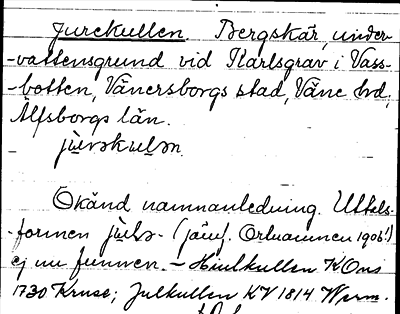 Jurekullen. Bergskär, under-
-vattensgrund vid Karlsgrav i Vass-
-botten, Vänersborgs stad, Väne hd,
Älfsborgs län.
Okänd namnanledning. Uttals-
-formen (jämf. Ortnamnen 1906!)
ej nu funnen. – Hiulkullen KOns
1730 Kruse; Julkullen KV 1814 Werm.